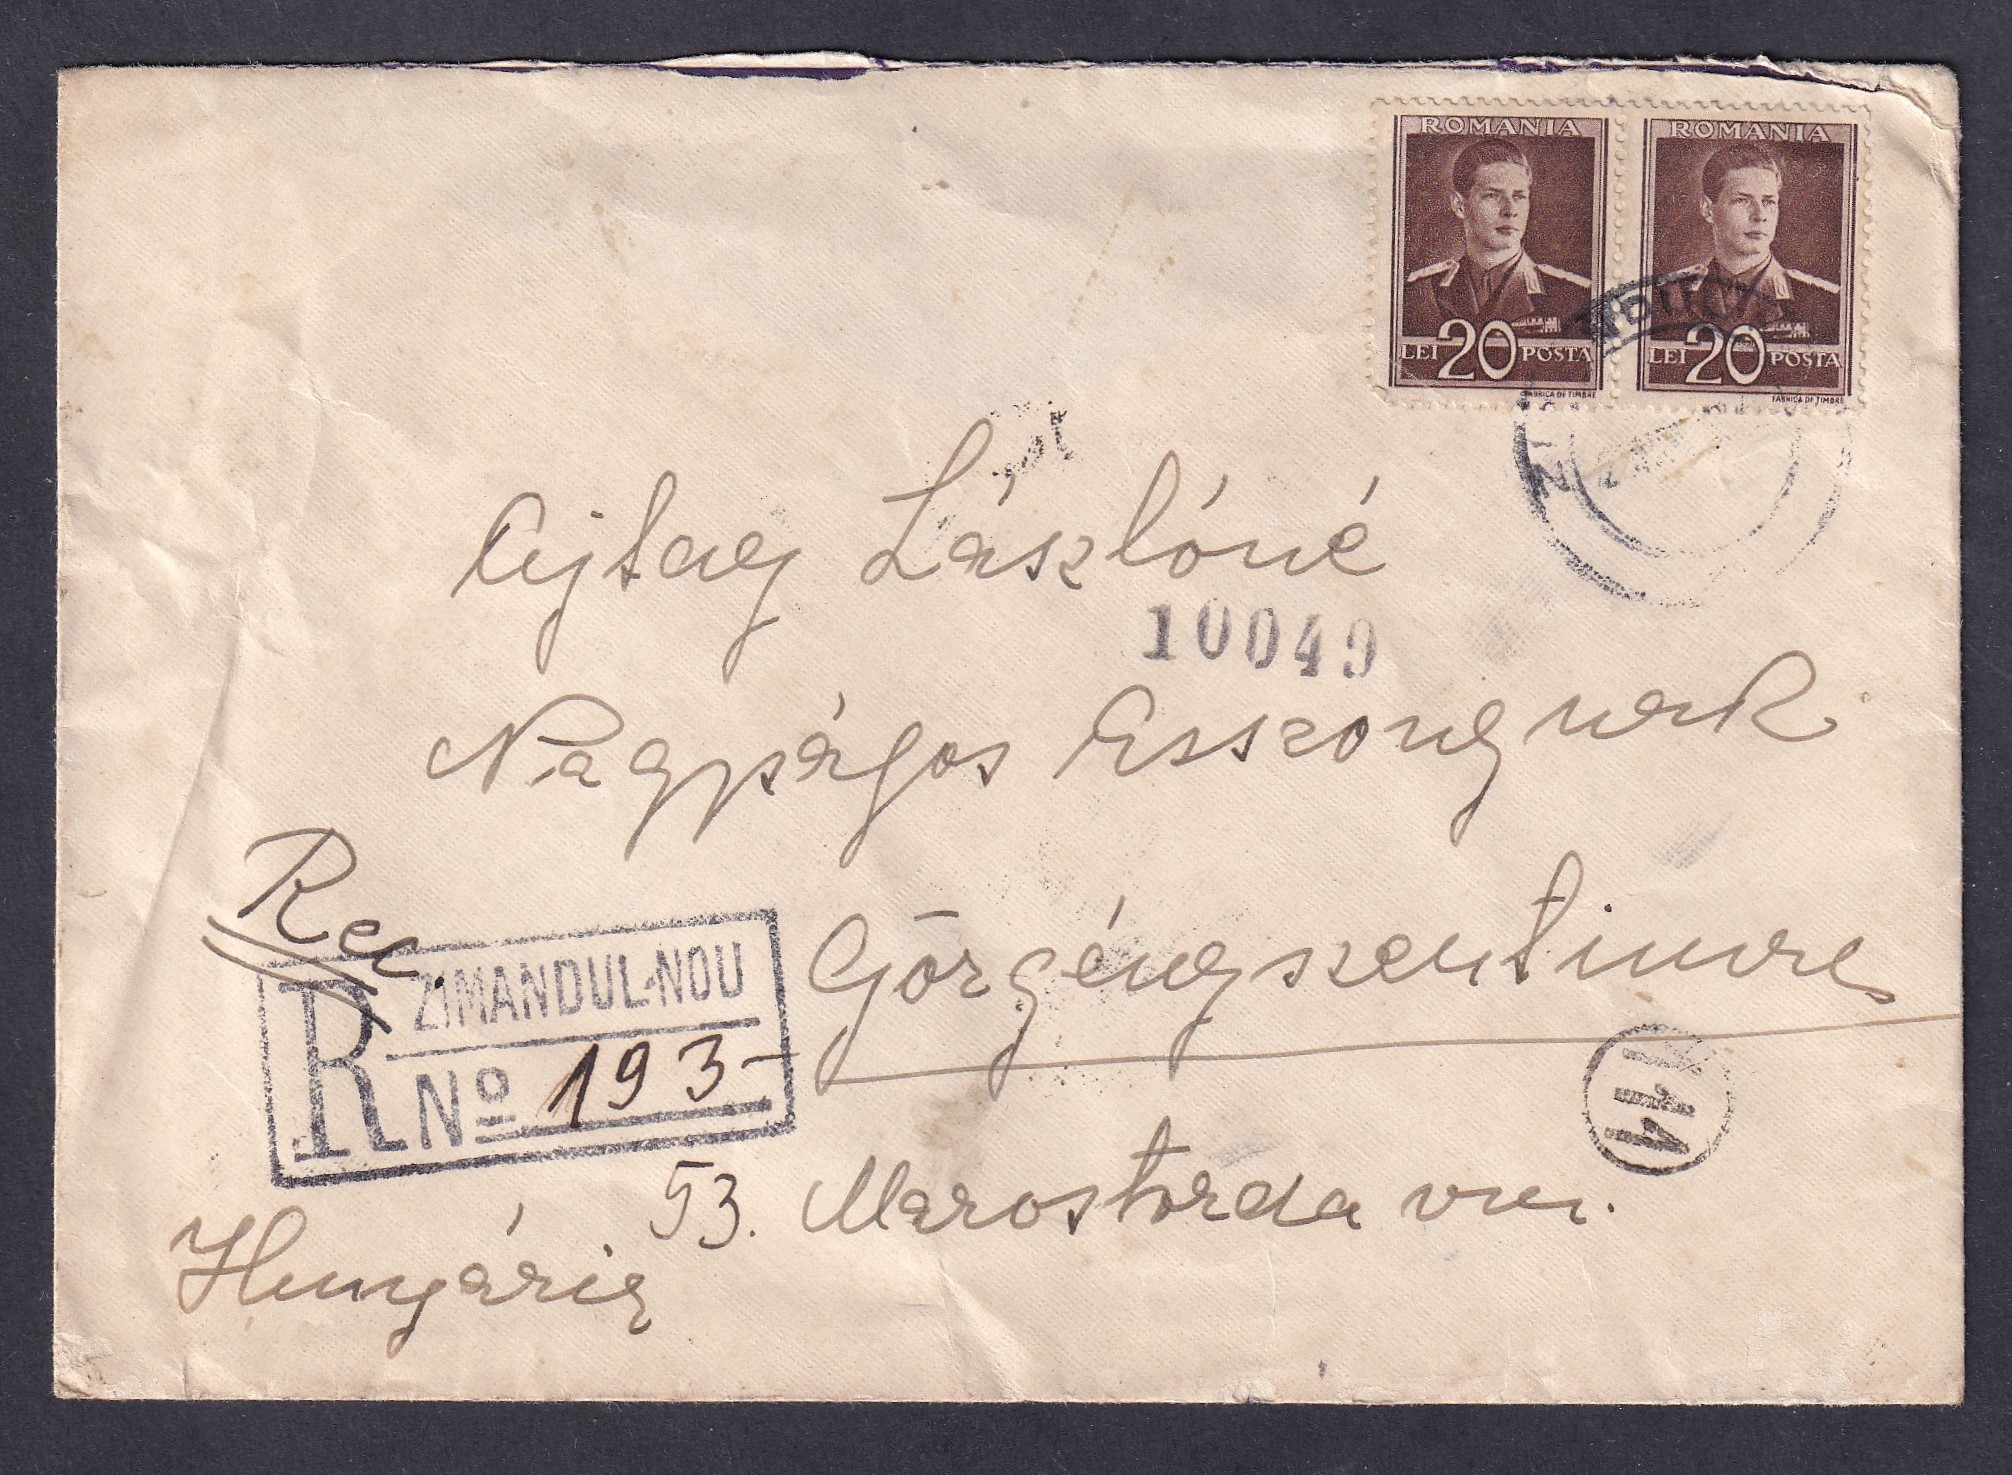 ROMANIA ROMANIA
LEI 20 POSTA LEI 20 POSTA
FABRICA DE TIMBRE FABRICA DE TIMBRE
Ajtay Lászlóné
10049
Nagyságos Asszonynak
Rec.
Görgényszentimre
ZIMANDUL-NOU
R No 193-
111
53. Marostorda vm.
Hungária